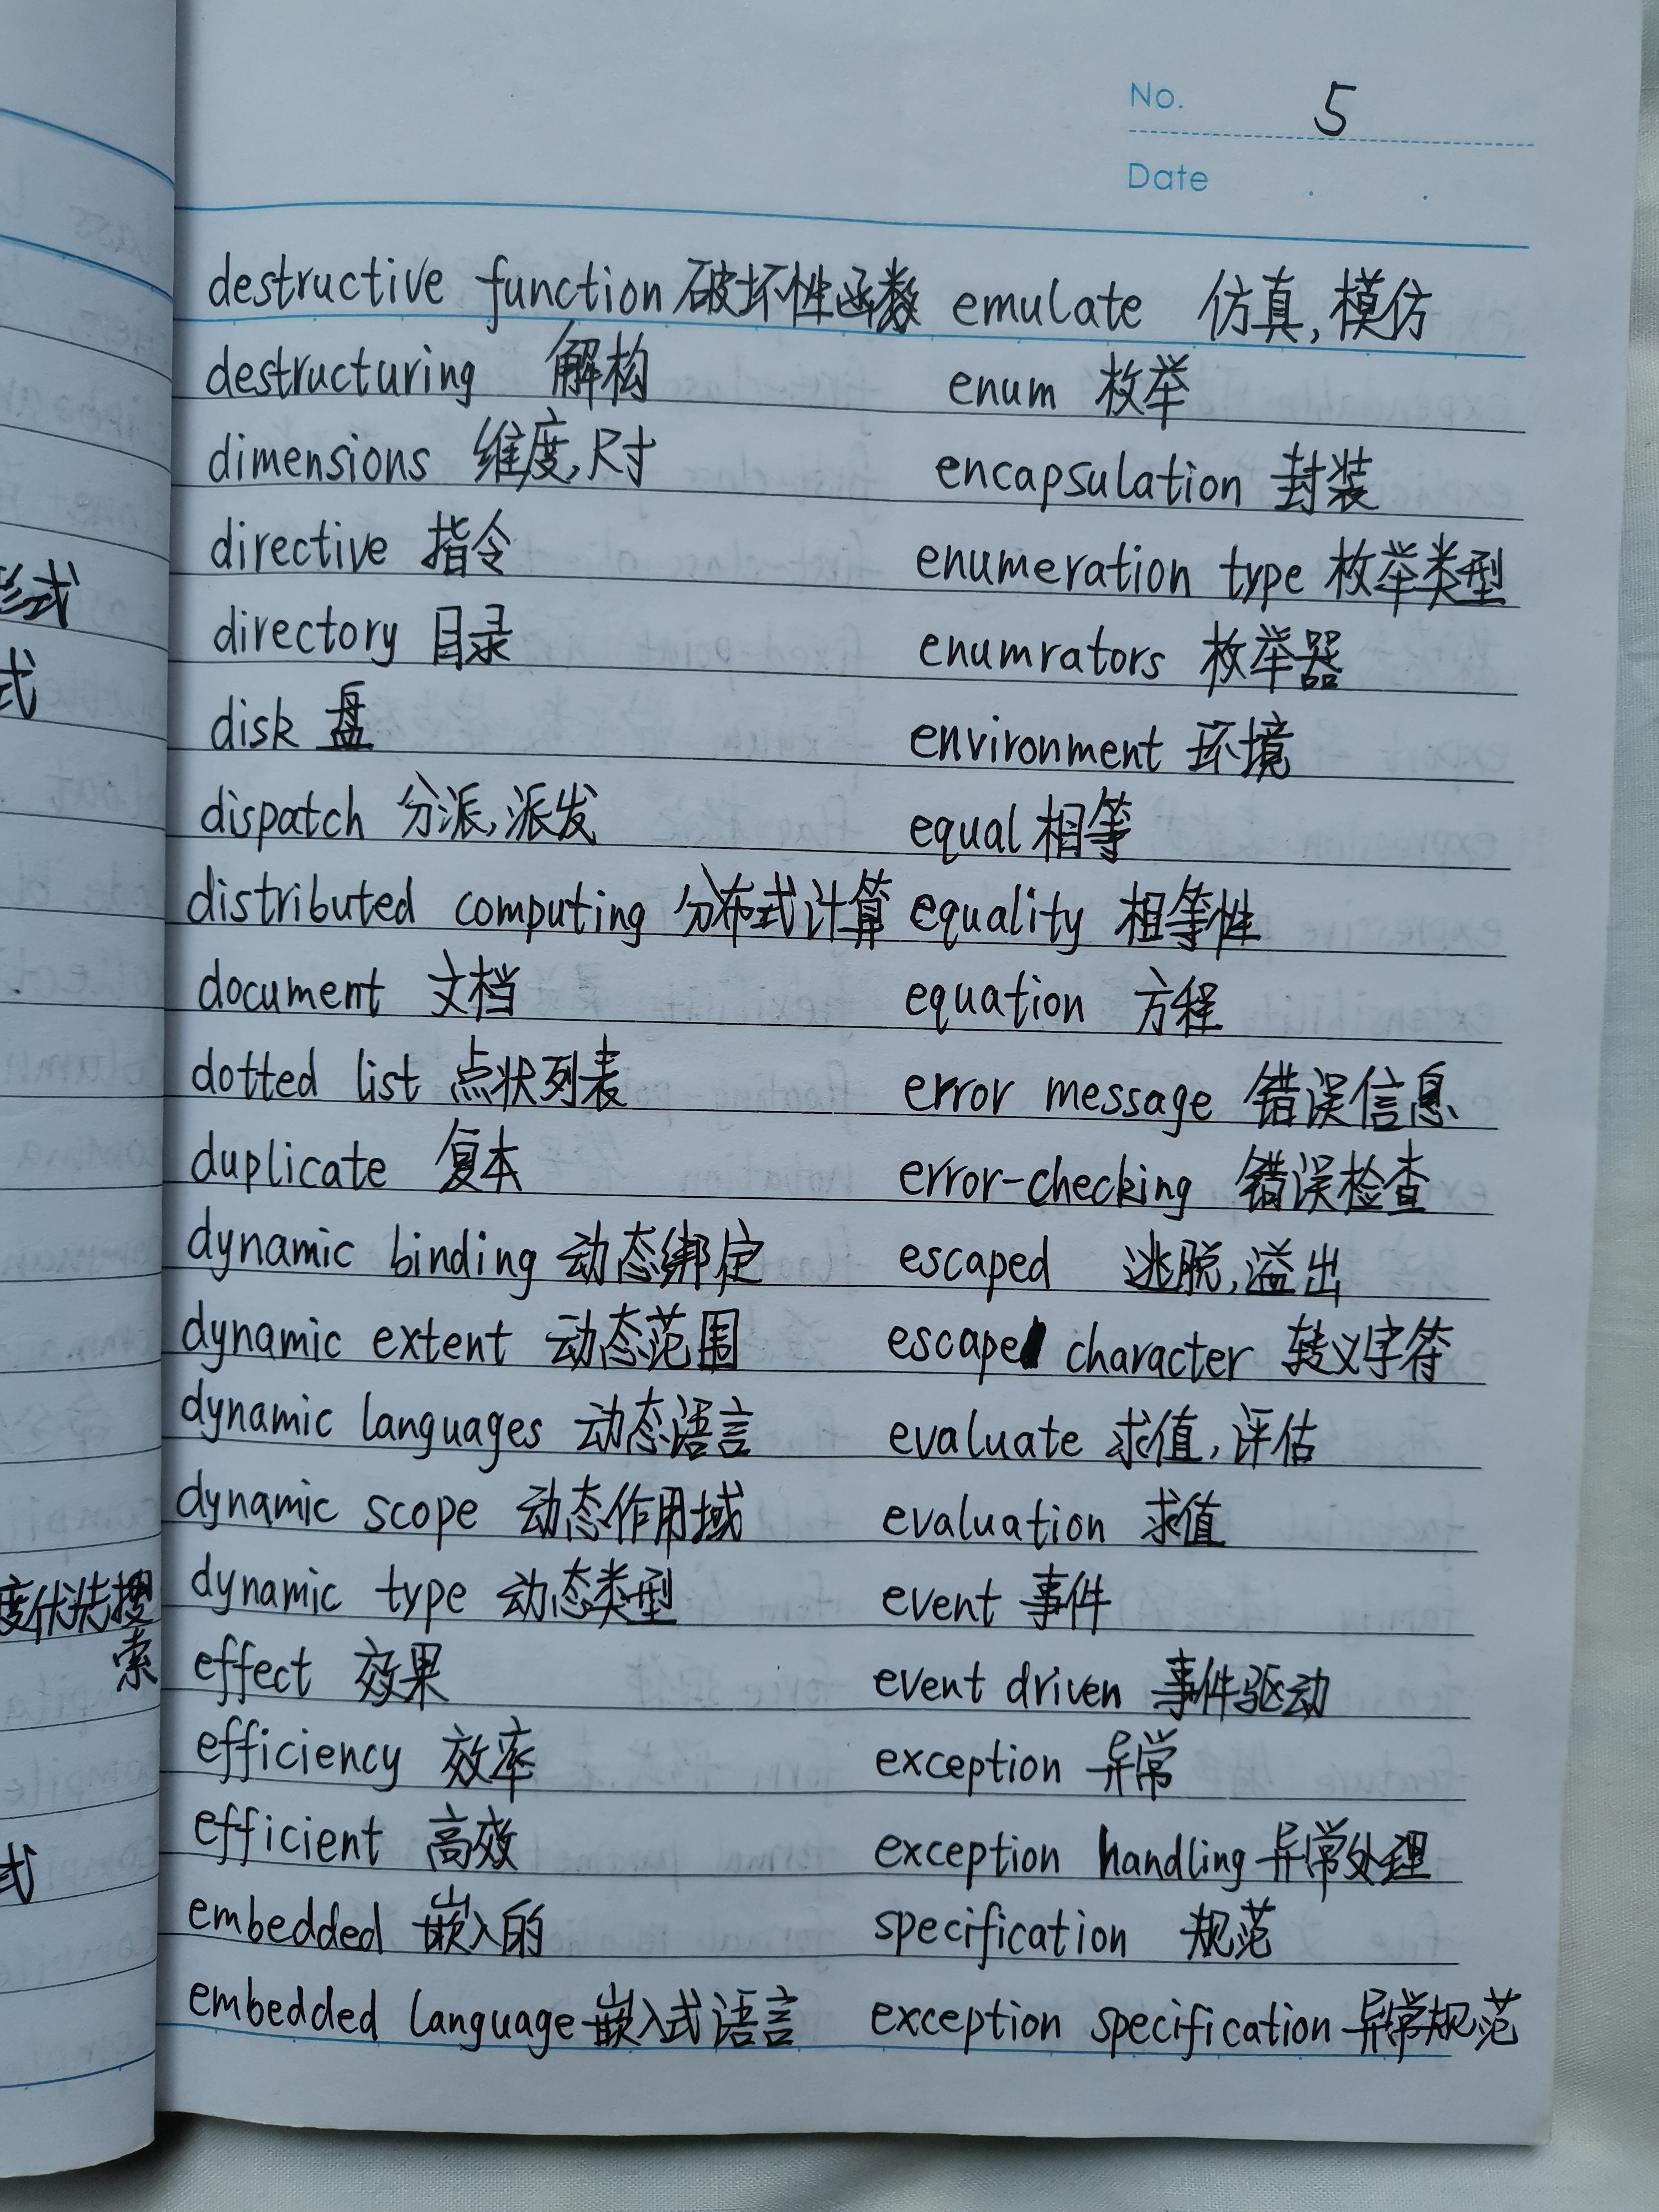 No. 5
Date
destructive function 破坏性函数
destructuring 解构
dimensions 维度,尺寸
directive 指令
directory 目录
disk 盘
dispatch 分派,派发
distributed computing 分布式计算
document 文档
dotted list 点状列表
duplicate 复本
dynamic binding 动态绑定
dynamic extent 动态范围
dynamic languages 动态语言
dynamic scope 动态作用域
dynamic type 动态类型
effect 效果
efficiency 效率
efficient 高效
embedded 嵌入的
embedded language 嵌入式语言
emulate 仿真,模仿
enum 枚举
encapsulation 封装
enumeration type 枚举类型
enumrators 枚举器
environment 环境
equal 相等
equality 相等性
equation 方程
error message 错误信息
error-checking 错误检查
escaped 逃脱,溢出
escape character 转义字符
evaluate 求值,评估
evaluation 求值
event 事件
event driven 事件驱动
exception 异常
exception handling 异常处理
specification 规范
exception specification 异常规范
形式
式
度优先搜
索
式